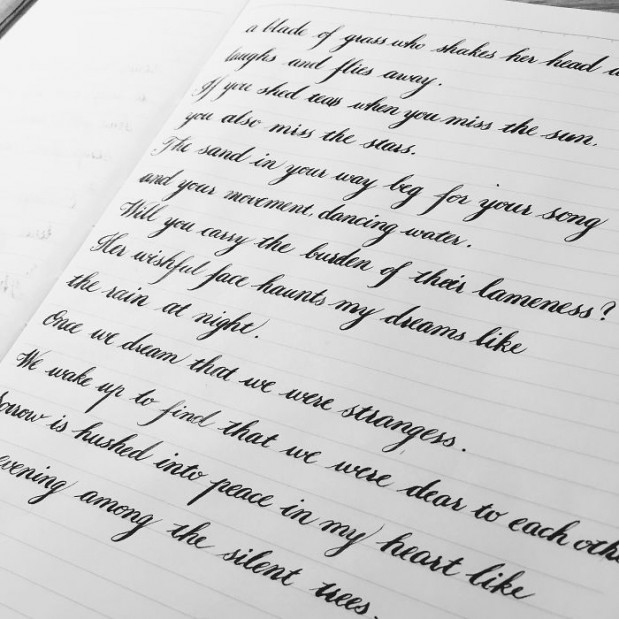 a blade of grass who shakes her head a
laughs and flies away.
If you shed teas when you miss the sun,
you also miss the stars.
The sand in your way beg for your song
and your movement, dancing water.
Will you carry the burden of their lameness?
Her wishful face haunts my dreams like
the rain at night.
Once we dream that we were strangess.
We wake up to find that we were dear to each othe
Sorrow is hushed into peace in my heart like
evening among the silent trees.